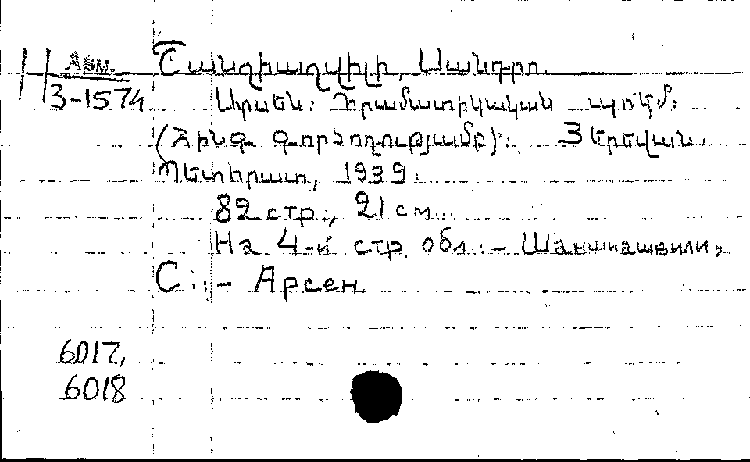 Арм.
3-1574
Շանշիաշվիլի, Սանդրո.
Արսեն: Դրամատիկական պոեմ:
(Հինգ գործողությամբ): Յերեվան.
Պետհրատ, 1939.
82 стр., 21 см.
На 4-й стр. обл.: - Шаншиашвили,
С.: - Арсен.
6017,
6018